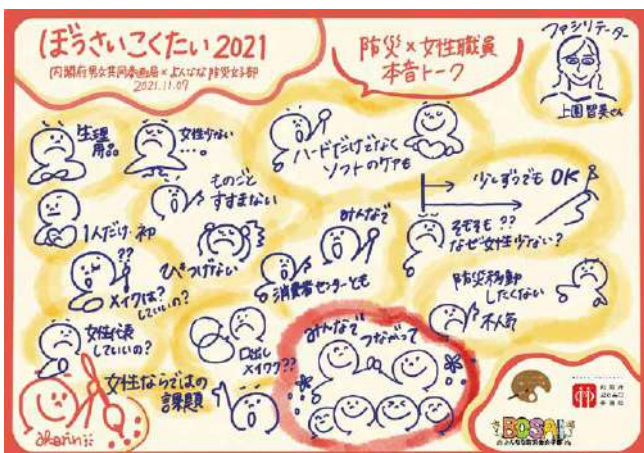 ぼうさいこくたい2021
内閣府男女共同参画局×よんなな防災女子部
2021.11.07
防災×女性職員
本音トーク
ファシリテーター
上園智美さん
生理
用品
女性少ない
…。
ハードだけでなく
ソフトのケアも
ものごと
すすまない
少しずつでもOK
1人だけ・初
みんなで
そもそも??
なぜ女性少ない?
??
メイクは?
していいの?
ひっつけない
消費者センターとも
防災移動
したくない
不人気
女性代表
していいの?
口出し
メイワク??
みんなで
つながって
女性ならではの
課題
akarin
BOSAI